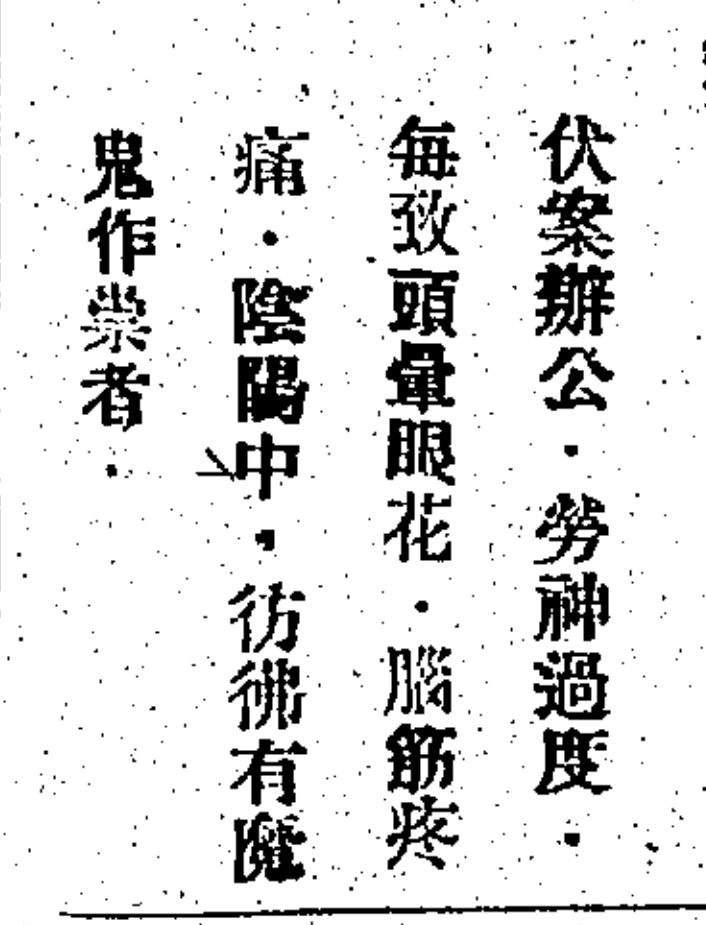 伏案辦公．勞神過度．
每致頭暈眼花．腦筋疼
痛．陰陽中．彷彿有魔
鬼作祟者．